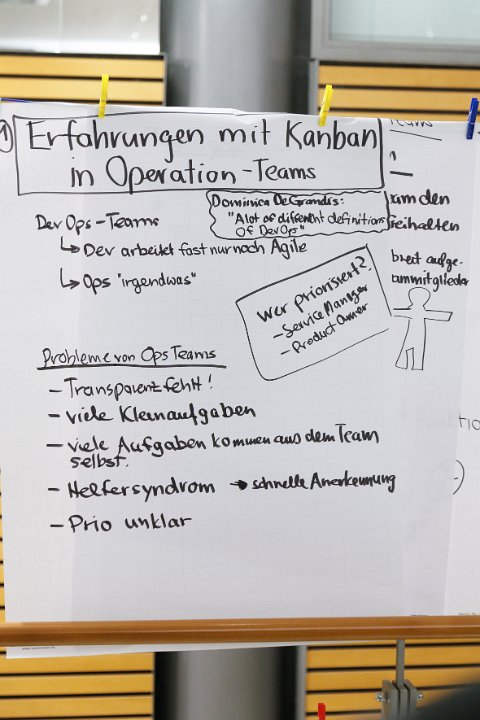 Erfahrungen mit Kanban
in Operation-Teams
Dominica DeGrandis:
"A lot of different definitions
of DevOps"
DevOps-Teams
↳ Dev arbeitet fast nur noch Agile
↳ Ops "irgendwas"
Wer priorisiert?
- Service Manager
- Product Owner
Probleme von Ops Teams
- Transparenz fehlt!
- viele Kleinaufgaben
- viele Aufgaben kommen aus dem Team
selbst.
- Helfersyndrom → schnelle Anerkennung
- Prio unklar
Teams
um den
eihalten
breit aufge-
ammitglieder